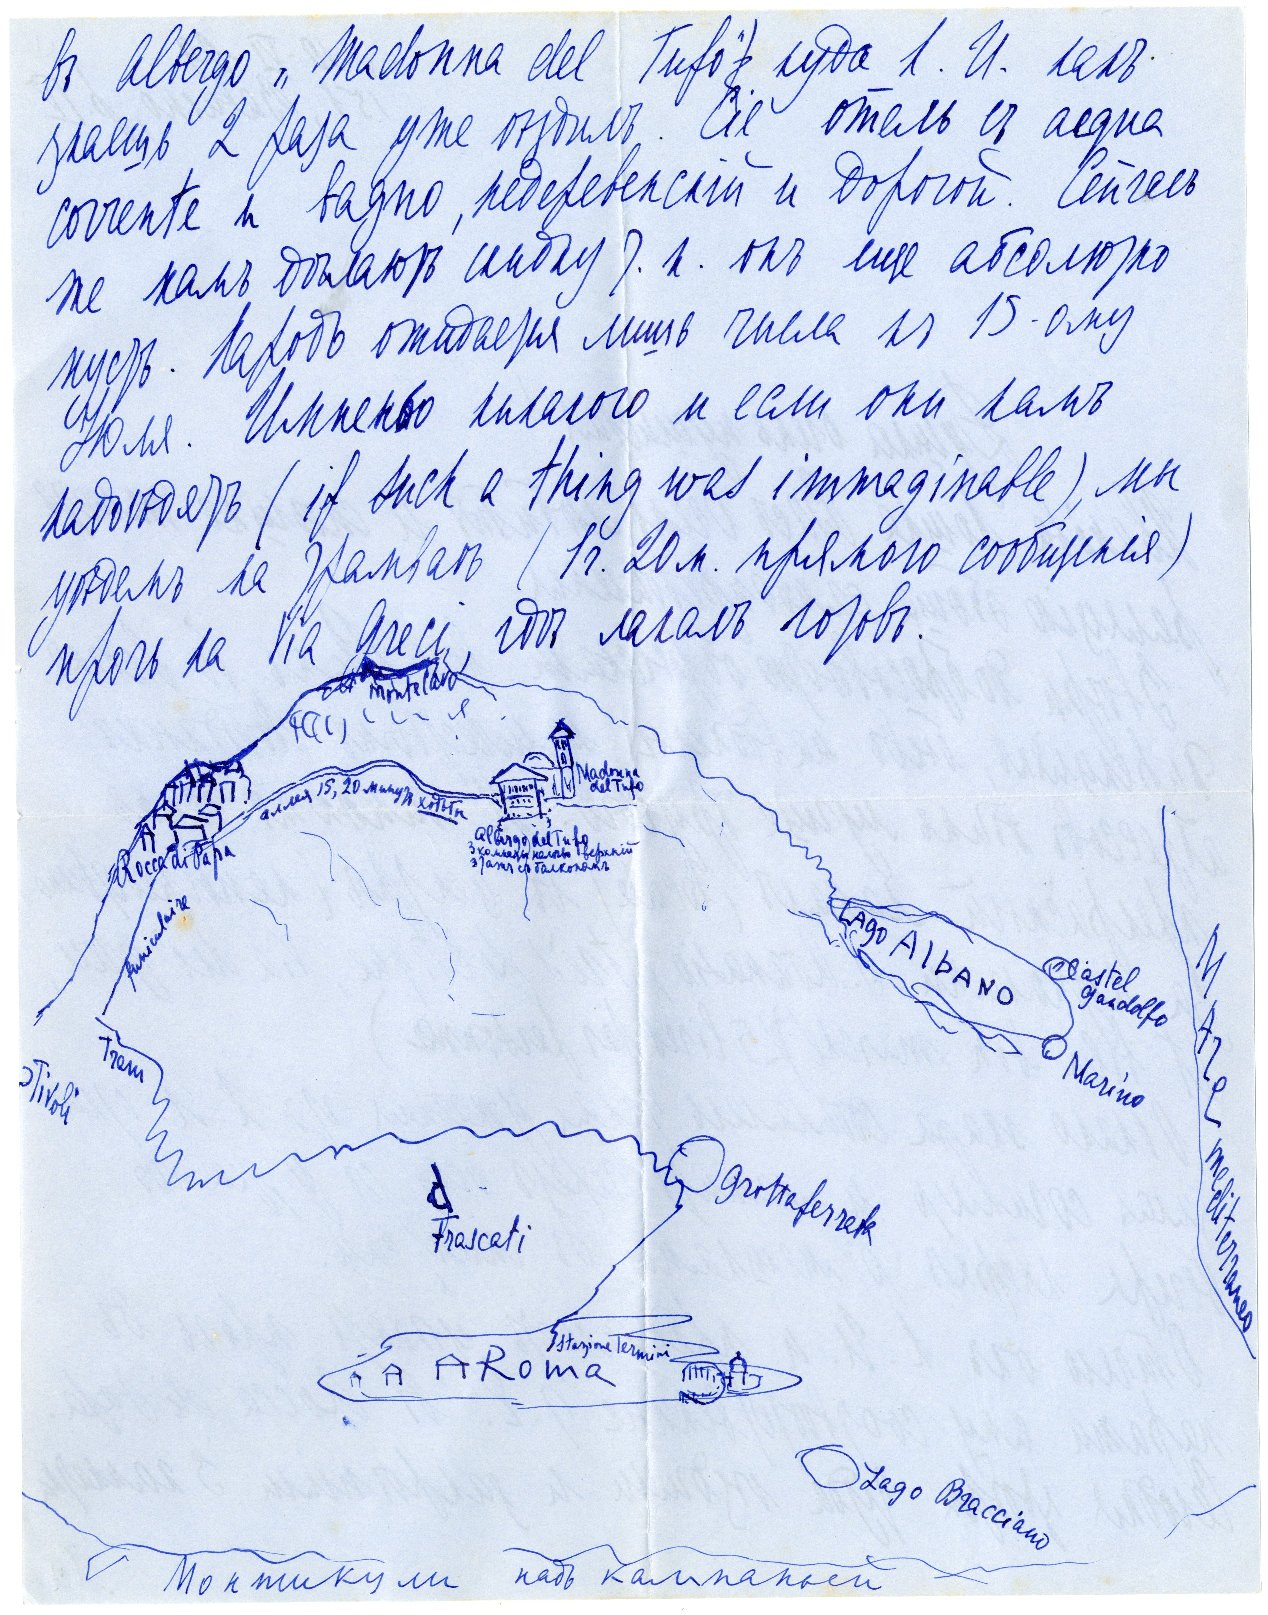 въ Albergo „Madonna del Tufo", куда В. И. какъ
знаешь 2 раза уже ѣздилъ. Сіе отель съ acqua
corrente и bagno, недеревенскій и дорогой. Сейчасъ
же намъ дѣлаютъ скидку т. к. онъ еще абсолютно
пустъ. Народъ ожидается лишь числа къ 15-ому
Іюля. Именно никакого и если они намъ
надоѣдятъ (if such a thing was immaginable), мы
уѣдемъ на трамваѣ (1 г. 20 м. прямого сообщенія)
прочь на Via Greci, гдѣ
Monte Cavo
Madonna
del Tufo
аллея 15, 20 минутъ ходьбы
Albergo del Tufo
3 комнаты верхній
этажъ съ балкономъ
Rocca di Papa
funiculaire
Lago Albano
Castel
Gandolfo
Marino
Mare mediterraneo
Tivoli
Tram
Grottaferrata
Frascati
Stazione Termini
Roma
Lago Bracciano
Монтикули надъ кампаньей